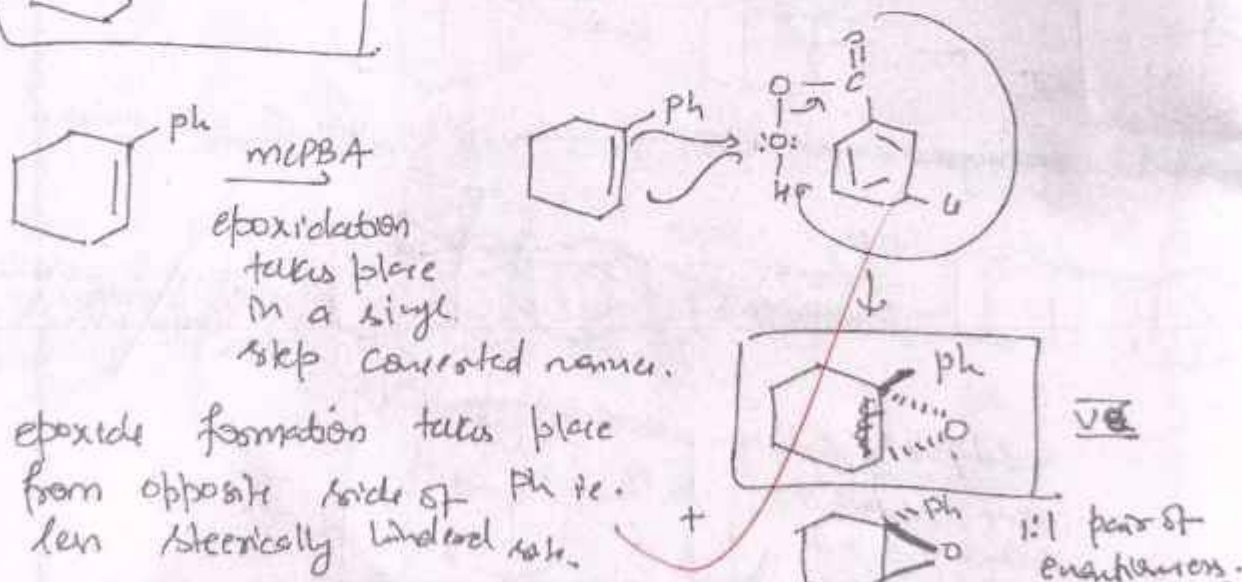 Ph
mCPBA
epoxidation
takes place
in a single
step concerted manner.
Ph
O
O - C
:O:
H
Cl
epoxide formation takes place
from opposite side of Ph ie.
less sterically hindered
Ph
O
+
Ph
O
1:1 pair of
enantiomers.